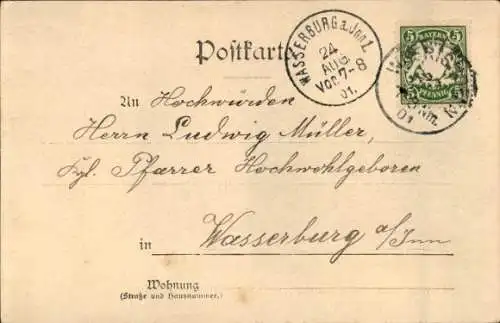 Postkarte
WASSERBURG a. Inn 1.
24
AUG
Vor. 7-8
01.
5 BAYERN 5
5 PFENNIG 5
An Hochwürden
Herrn Ludwig Müller,
Kgl. Pfarrer Hochwohlgeboren
in Wasserburg a/Inn
Wohnung
(Straße und Hausnummer.)